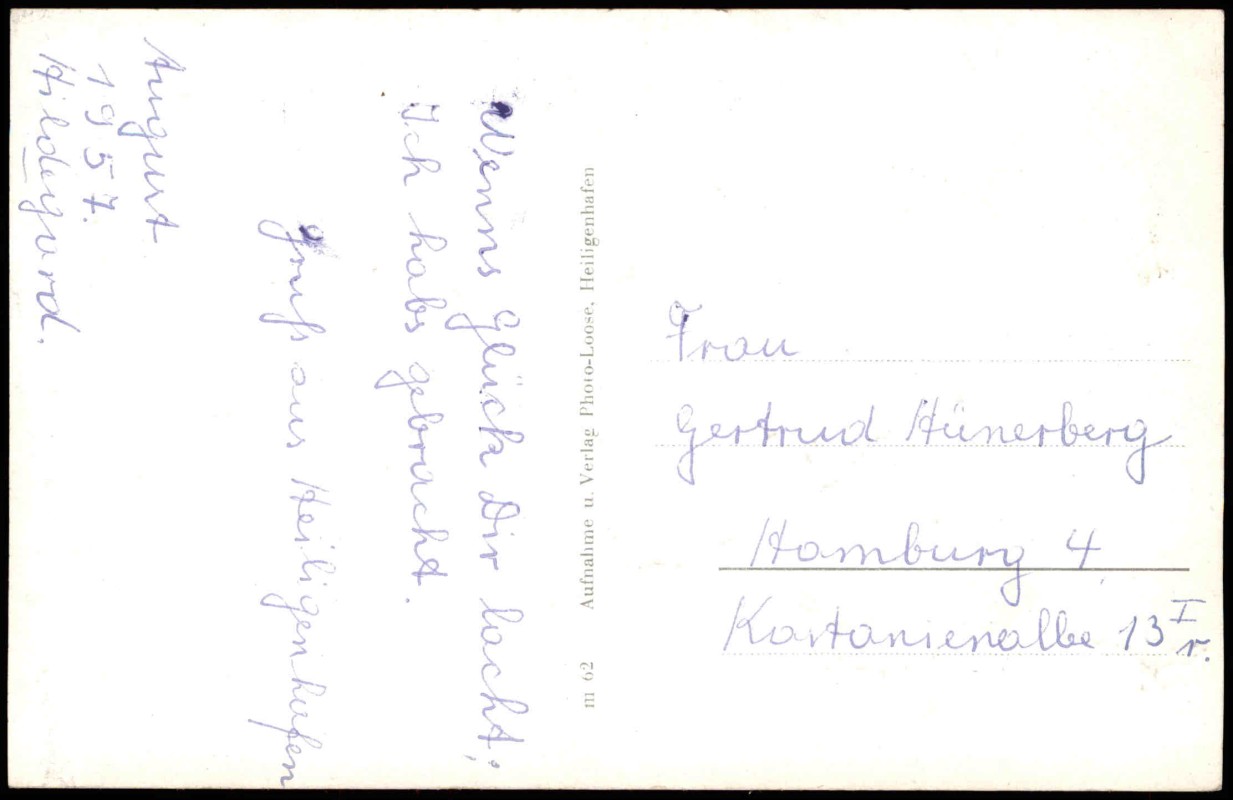 Wenns Glück Dir lacht;
Ich habs gebracht.
Gruß aus Heiligenhafen
August
1957.
Hildegard.
m 62 Aufnahme u. Verlag Photo-Loose, Heiligenhafen
Frau
Gertrud Hünerberg
Hamburg 4
Kastanienallee 13 I r.